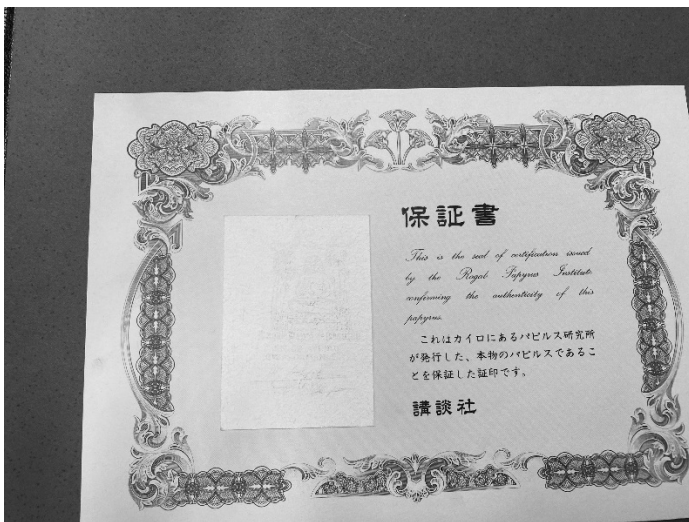 保証書
This is the seal of certification issued
by the Rogal Papyrus Institute
confirming the authenticity of this
papyrus.
これはカイロにあるパピルス研究所
が発行した、本物のパピルスであるこ
とを保証した証印です。
講談社